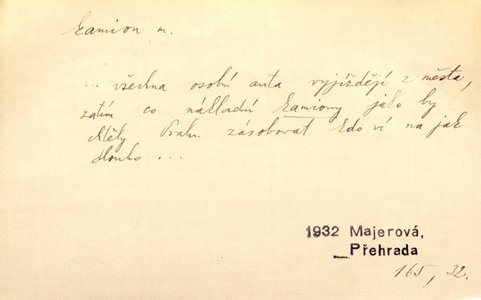 kamion m.
... všechna osobní auta vyjíždějí z města,
zatím co nákladní kamiony jako by
chtěly Prahu zásobovat kdo ví na jak
dlouho ...
1932 Majerová,
Přehrada
165, 32.